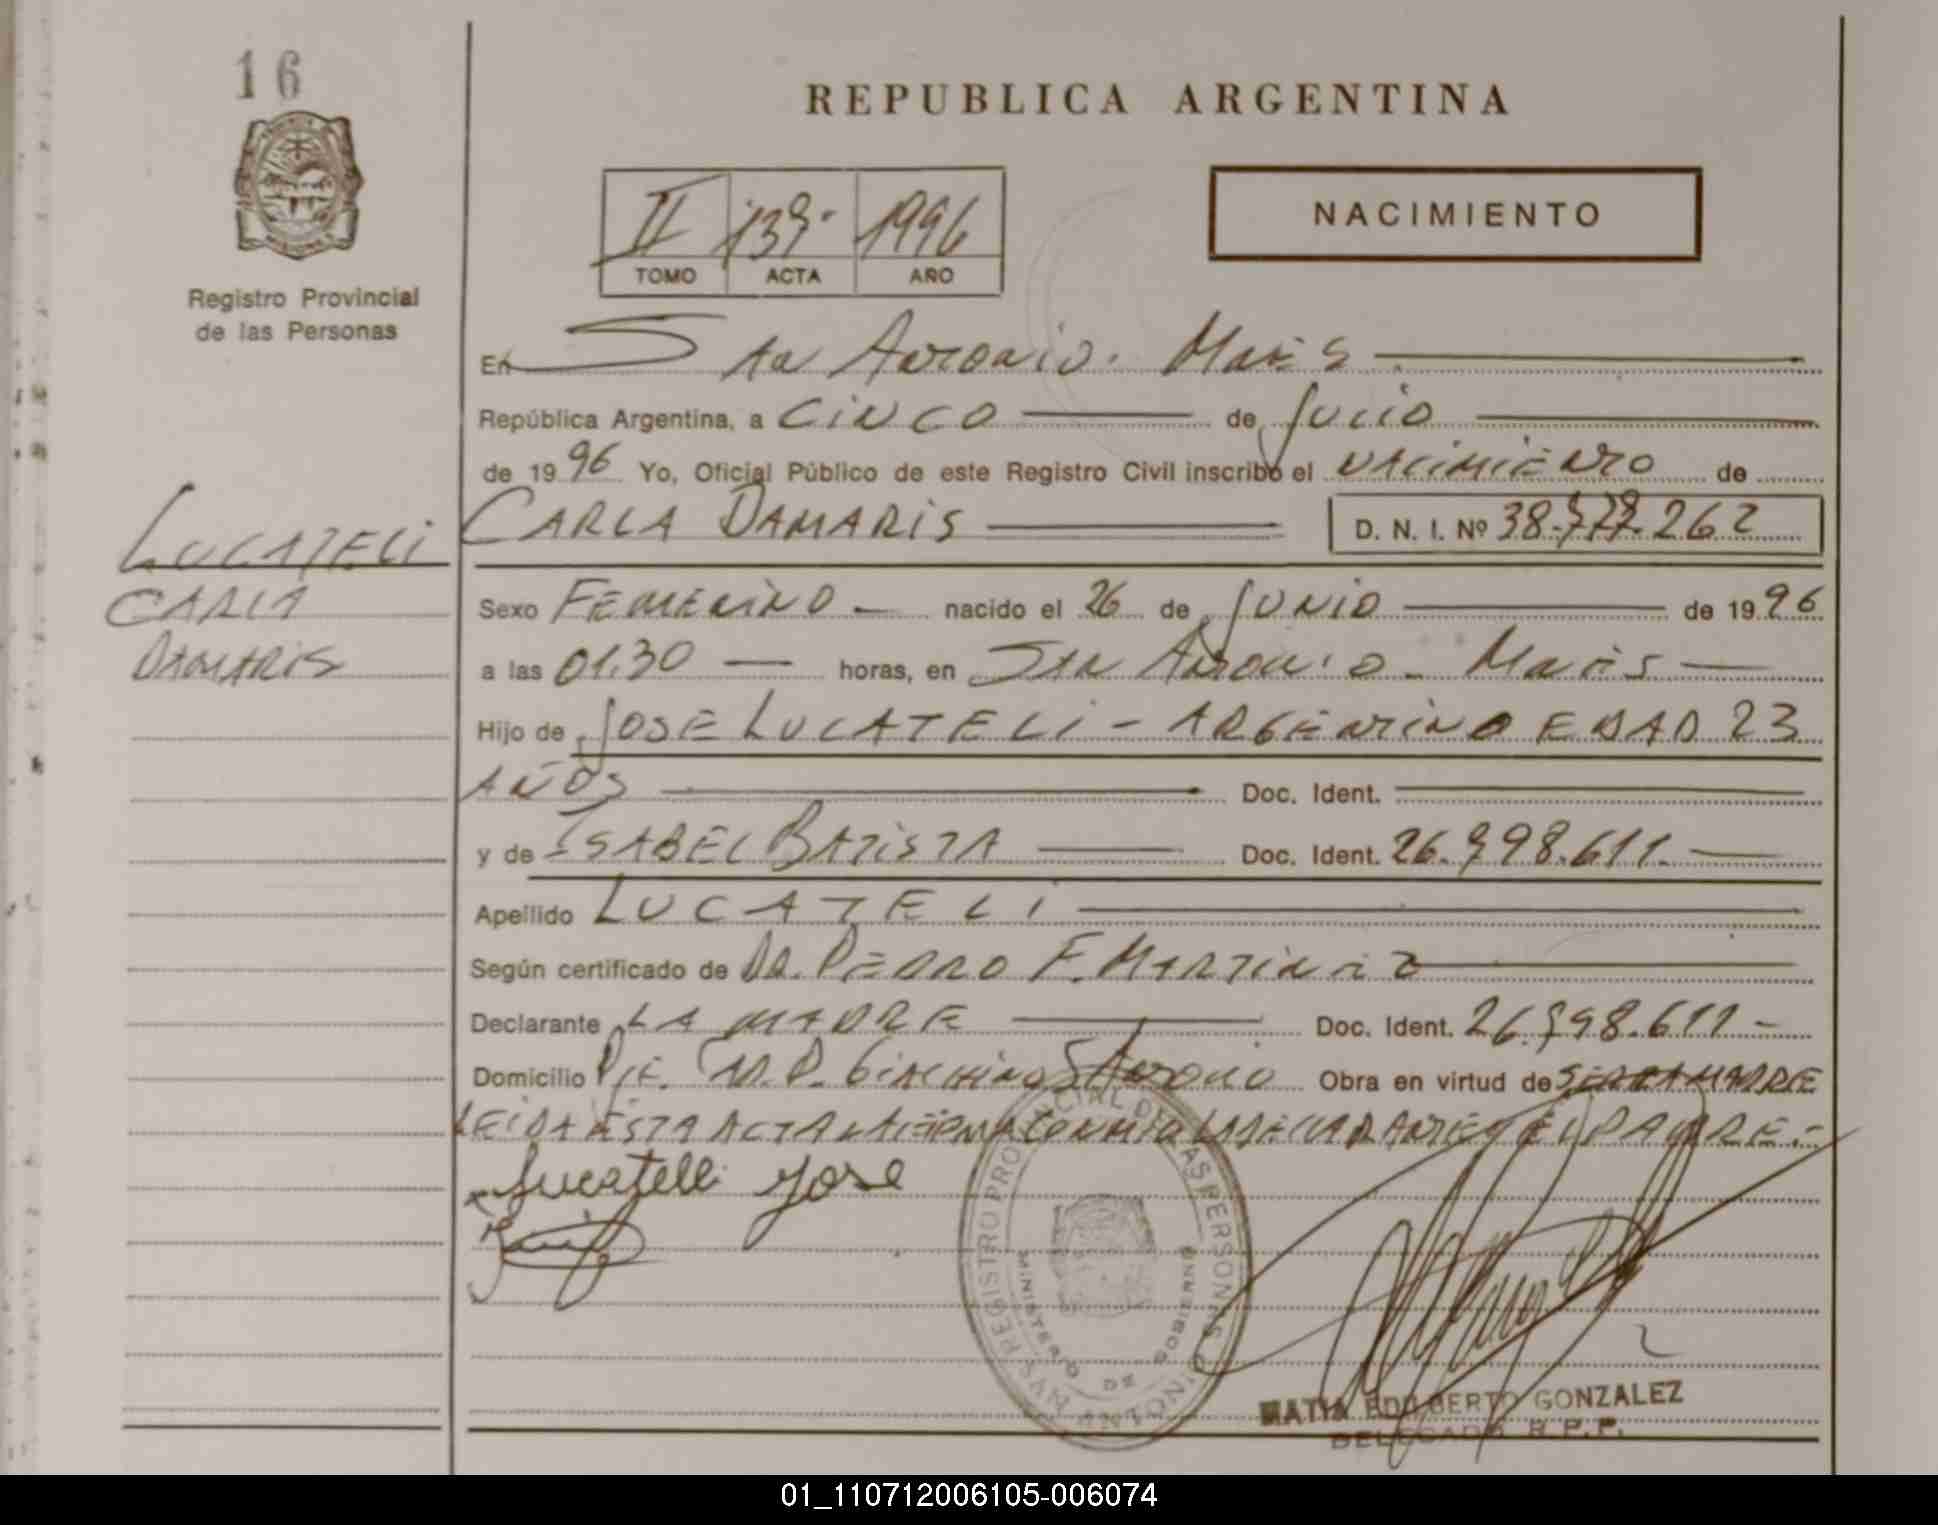 16
REPUBLICA ARGENTINA
NACIMIENTO
II 139. 1996
TOMO ACTA AÑO
Registro Provincial
de las Personas
En San Antonio. Mnes
República Argentina, a CINCO de Julio
de 1996 Yo, Oficial Público de este Registro Civil inscribo el NACIMIENTO de
LUCATELI
CARLA
DAMARIS
CARLA DAMARIS D. N. I. Nº 38.777.262
Sexo FEMENINO nacido el 26 de JUNIO de 1996
a las 01.30 horas, en SAN ANTONIO - Mnes
Hijo de JOSE LUCATELI - ARGENTINO EDAD 23
AÑOS Doc. Ident.
y de ISABEL BATISTA Doc. Ident. 26.998.611.
Apellido LUCATELI
Según certificado de DR. PEDRO F. MARTINEZ
Declarante LA MADRE Doc. Ident. 26.998.611
Domicilio Pje. S. Antonio Obra en virtud de SER LA MADRE
LEIDA ESTA ACTA LA FIRMA CONMIGO LA DECLARANTE Y EL PADRE.-
Lucatelli Jose
REGISTRO PROVINCIAL DE LAS PERSONAS
MINISTERIO DE GOBIERNO
EDILBERTO GONZALEZ
DELEGADO R.P.P.
01_110712006105-006074